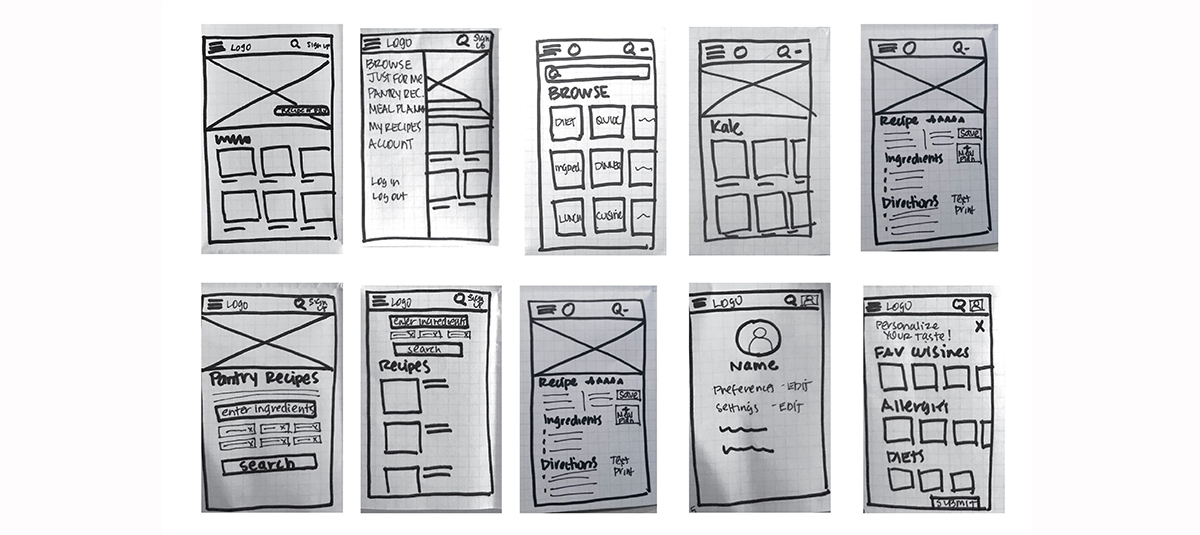 LOGO
Sign up
LOGO
Sign up
BROWSE
JUST FOR ME
PANTRY REC.
MEAL PLANS
MY RECIPES
ACCOUNT
Log in
Log out
BROWSE
DIET
QUICK
Ingred.
DINNER
LUNCH
Cuisine
Kale
Recipe
Save
+
Meal Plan
Ingredients
Directions
Text
Print
LOGO
Sign up
Pantry Recipes
enter ingredients
x x x
x x x
search
LOGO
Sign up
enter ingredients
x x x
search
Recipes
Recipe
Save
+
Meal Plan
Ingredients
Directions
Text
Print
LOGO
Name
Preferences - EDIT
Settings - EDIT
LOGO
Personalize X
YOUR Taste!
FAV CUISINES
Allergies
DIETS
SUBMIT